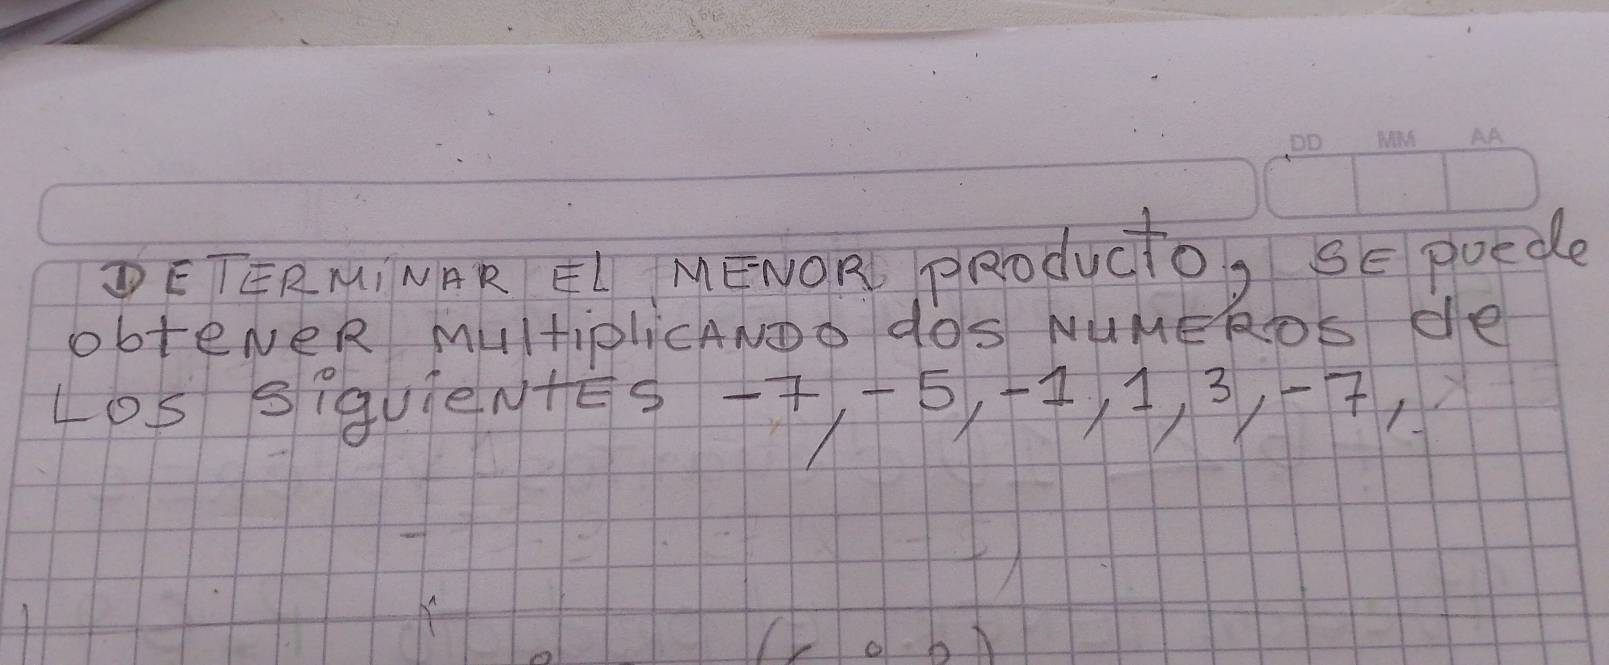 DD MM AA
DETERMiNAR El MENOR PRODucto, SE puede
obteNeR MultiplicANDO dos NUMEROS de
Los siguieNtES -7, -5, -1, 1, 3, -7,